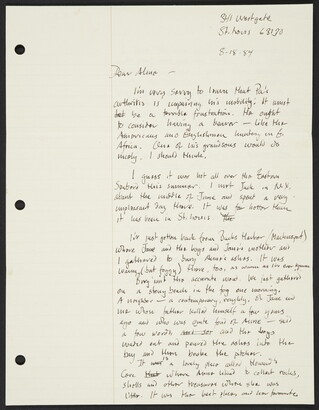 811 Westgate
St. Louis 63130
8-18-84
Dear Alma —
I'm very sorry to learn that Pa's
arthritis is impairing his mobility. It must
be a terrible frustration. He ought
to consider hiring a bearer — like the
Americans and Englishmen hunting in E.
Africa. One of his grandsons would do
nicely, I should think.
I guess it was hot all over the Eastern
Seaboard this summer. I met Jack in N.Y.
about the middle of June and spent a very
unpleasant day there. It was far hotter than
it has been in St. Louis.
I've just gotten back from Bucks Harbor (Machiasport)
where Jane and the boys and Jane's mother and
I gathered to bury ashes. It was
(but foggy) there, too, as warm as I've ever known
Bury isn't the accurate word. We just gathered
on a stony beach in the fog one morning.
A neighbor — a contemporary, roughly, of Jane
whose father killed himself a few years
ago and who was quite fond of Anne — said
a few words and the boys
waded out and poured the ashes into the
bay and broke the pitcher.
It was a lovely place called
Cove where Anne liked to collect rocks,
shells and other treasures when she was
little. It was the best place and her favorite